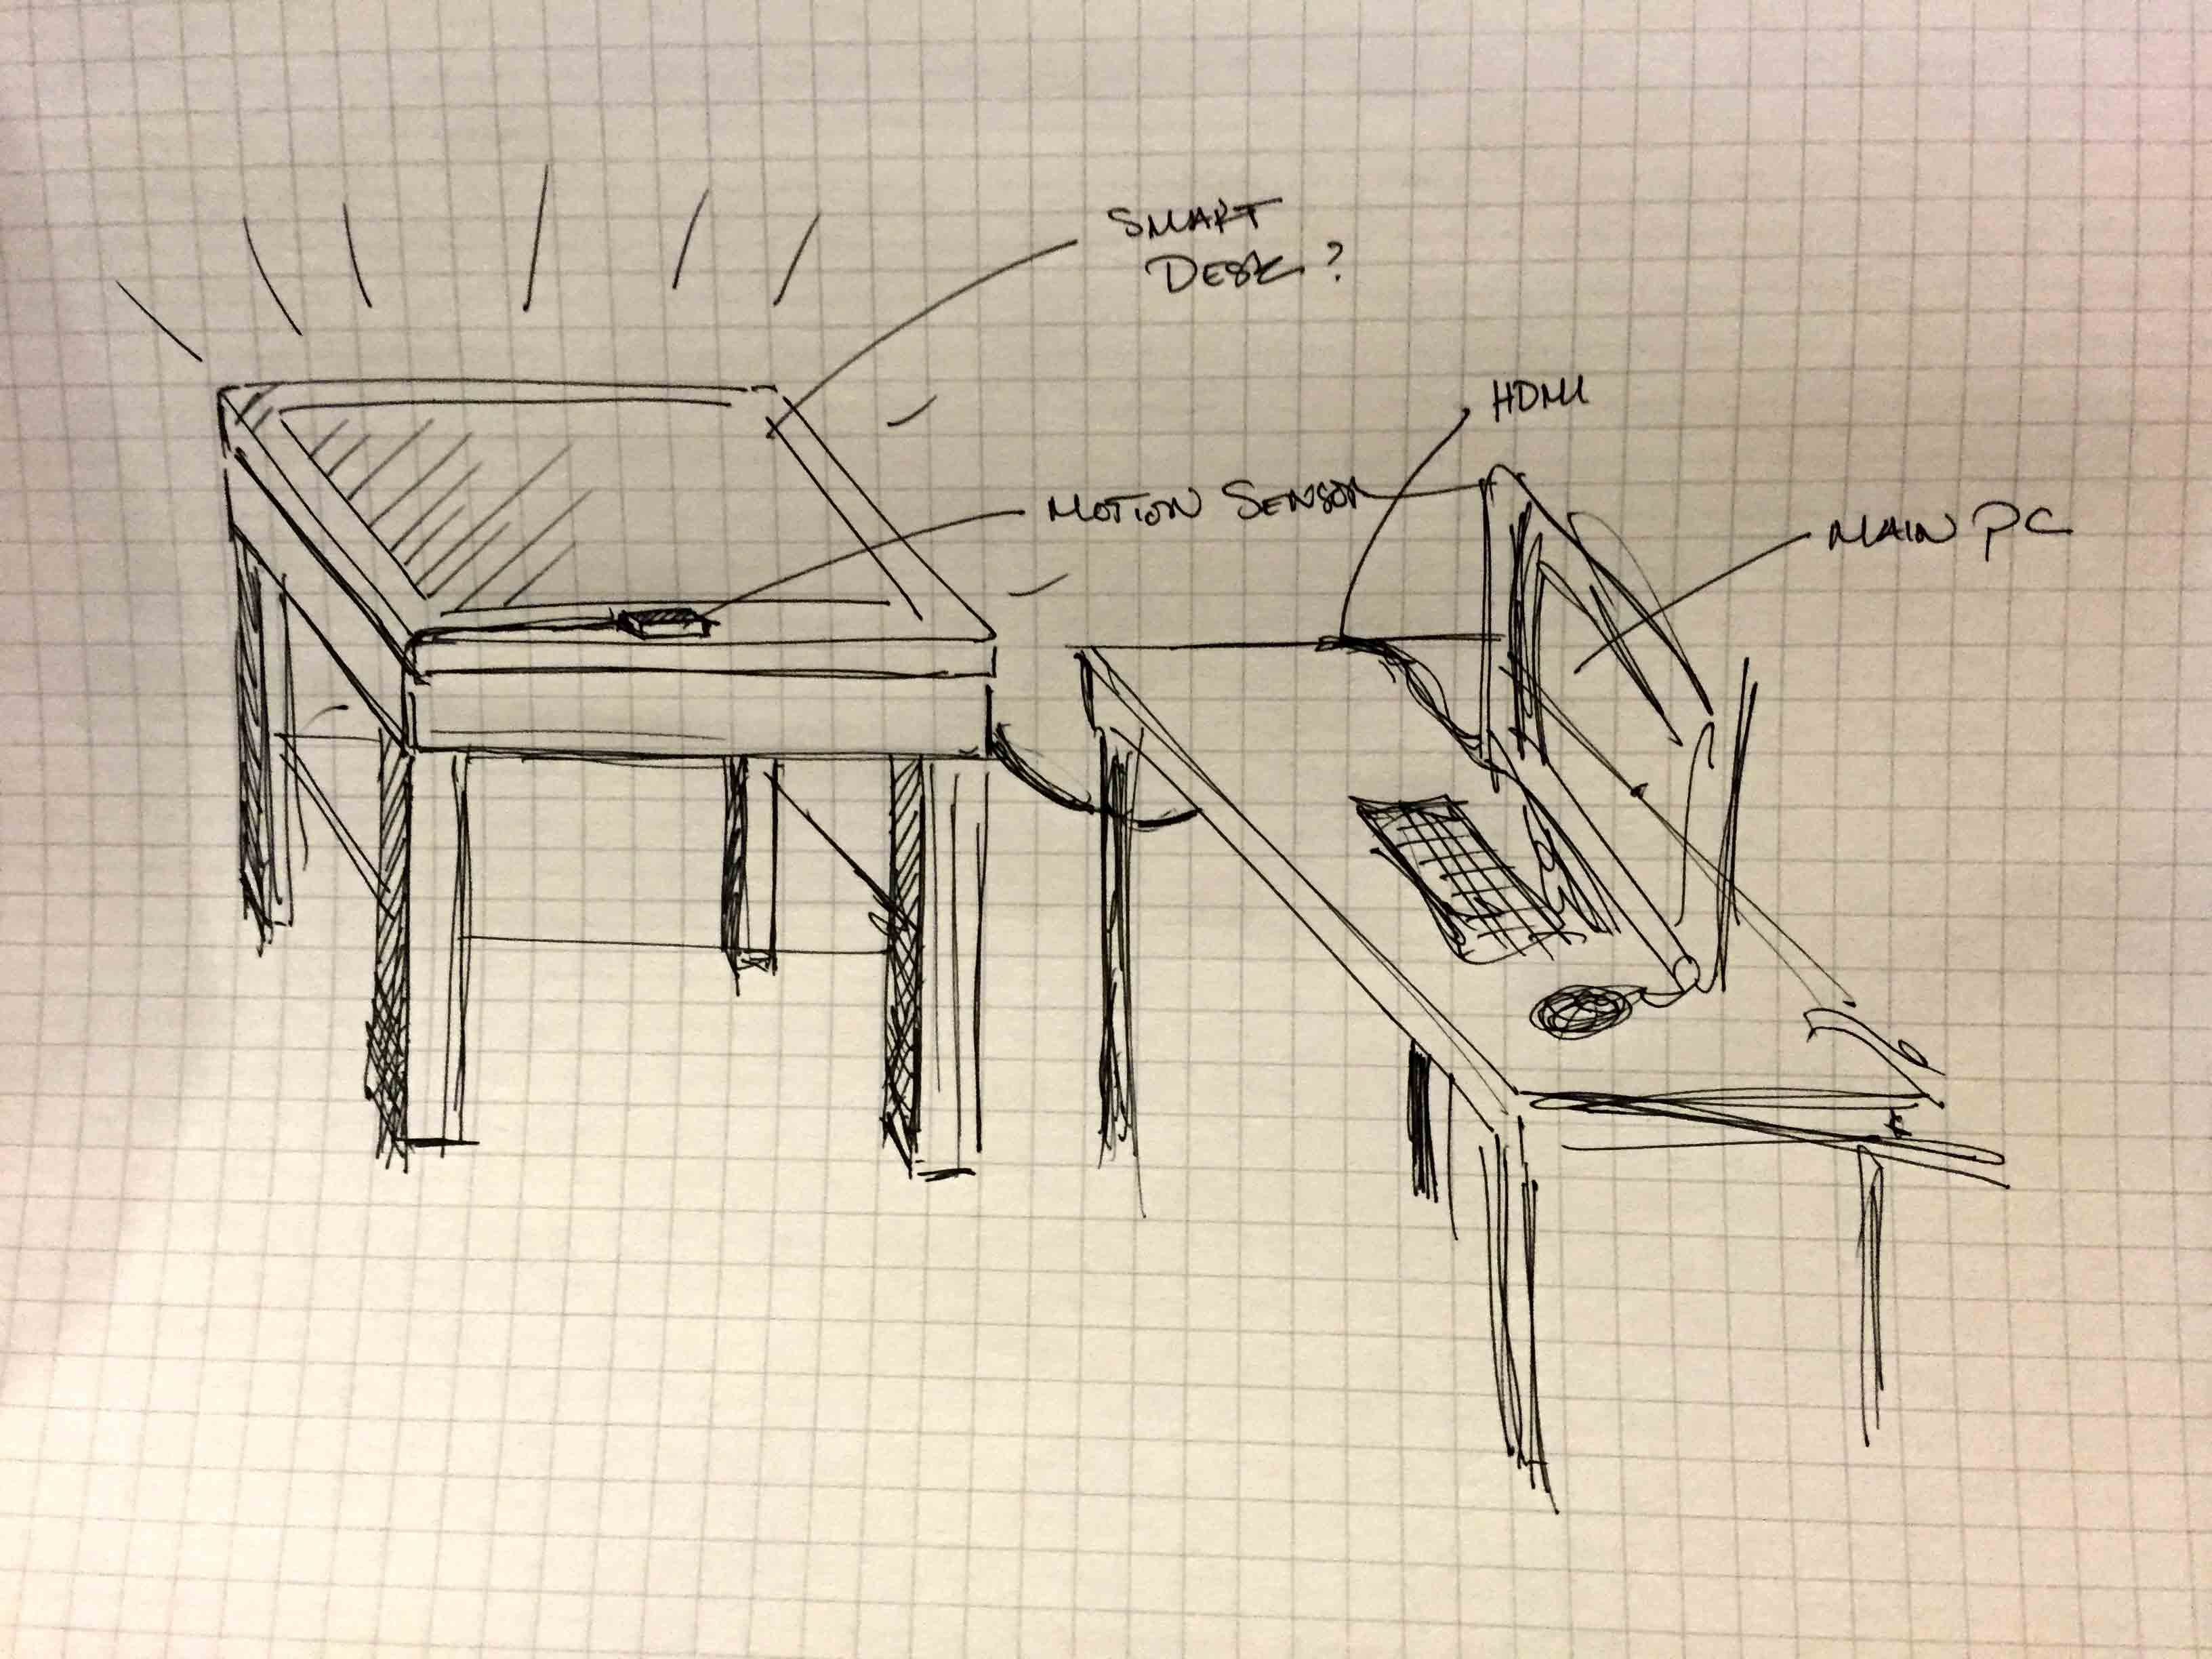 SMART
DESK?
HDMI
MOTION SENSOR
MAIN PC